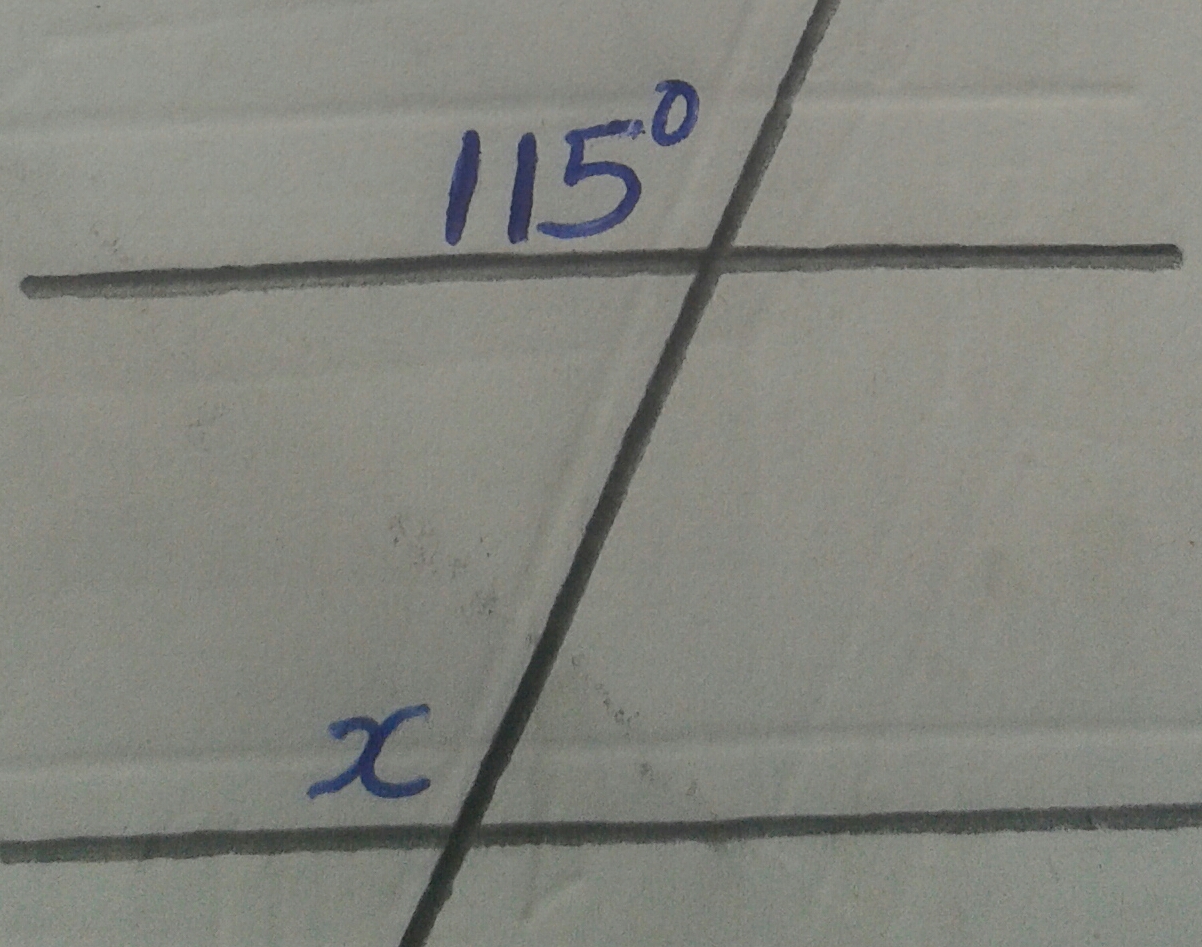 115°
x